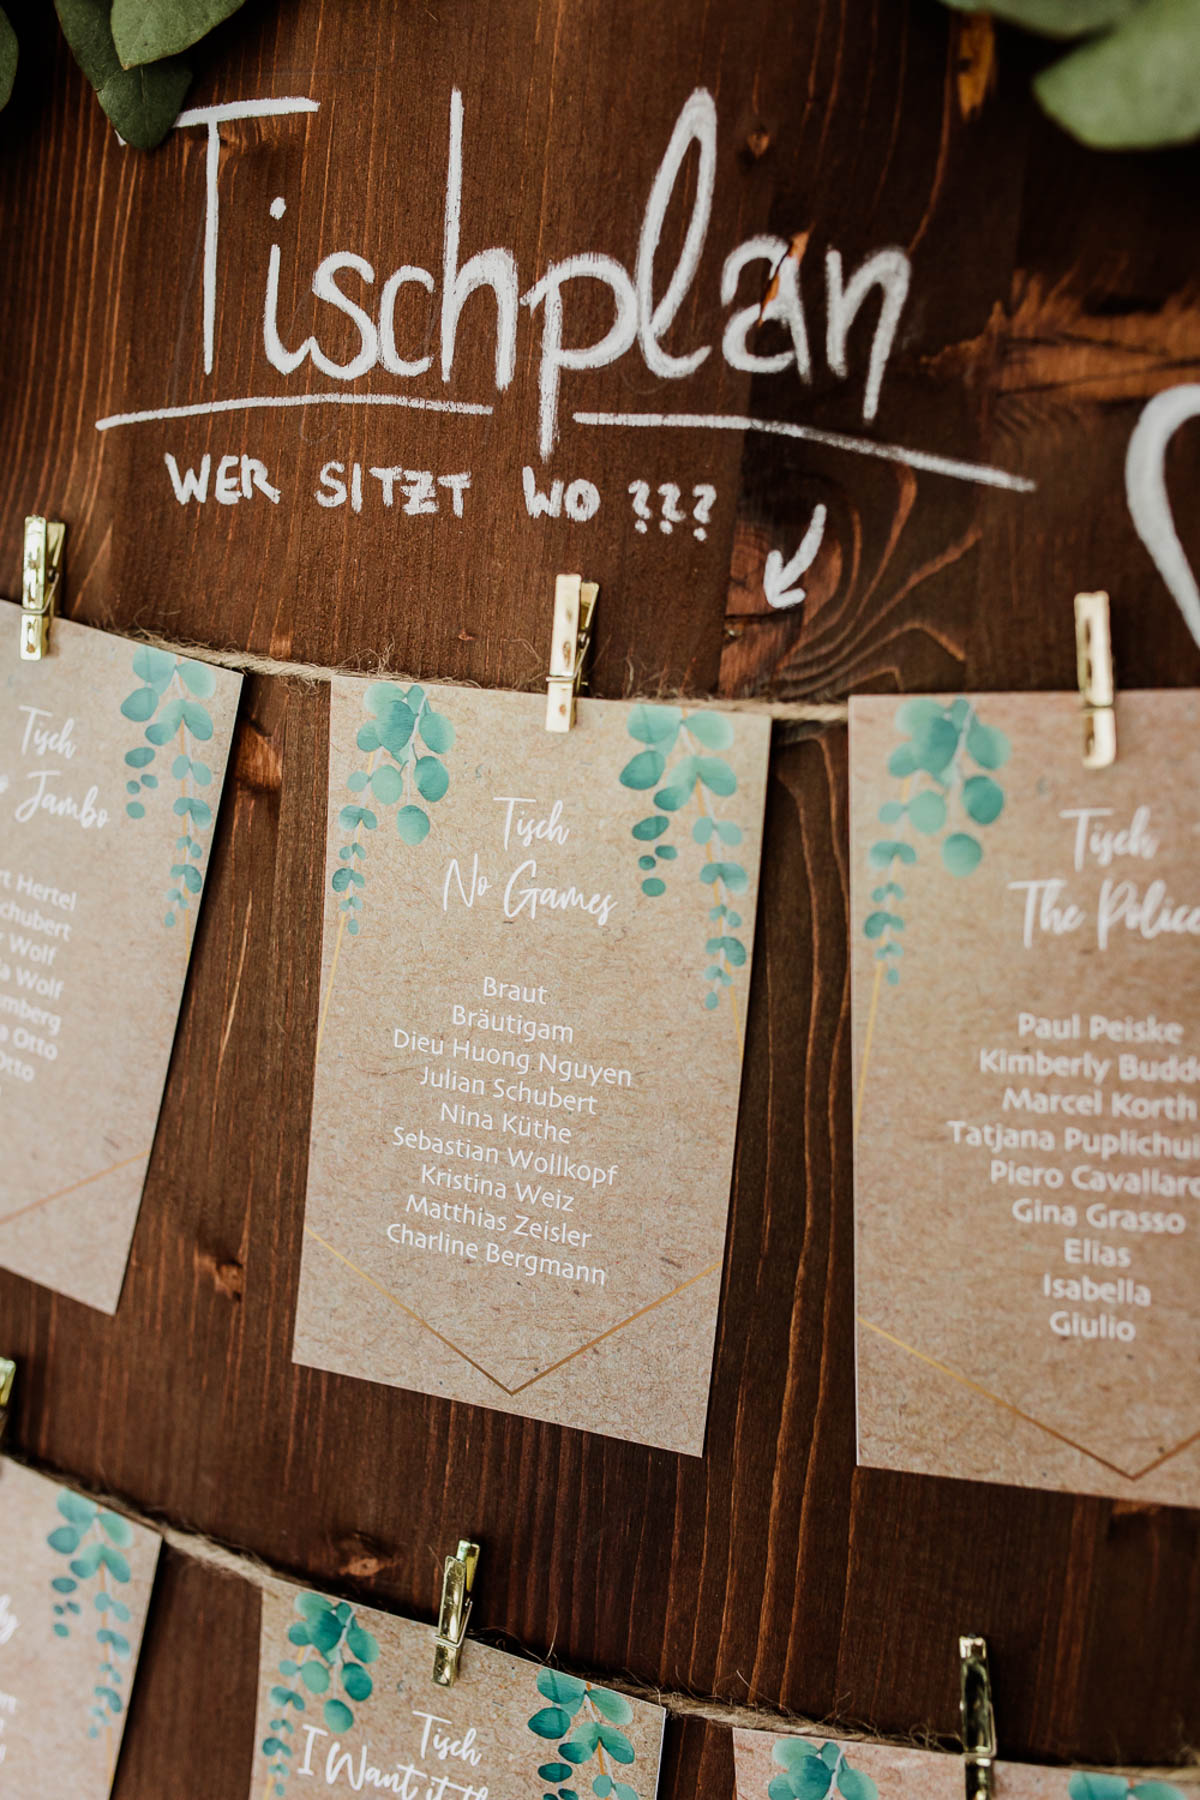 Tischplan
WER SITZT WO ???
Tisch
Jambo
Hertel
Wolf
Wolf
Otto
Otto
Tisch
No Games
Braut
Bräutigam
Dieu Huong Nguyen
Julian Schubert
Nina Küthe
Sebastian Wollkopf
Kristina Weiz
Matthias Zeisler
Charline Bergmann
Tisch
The Police
Paul Peiske
Kimberly
Marcel Korth
Tatjana
Piero
Gina Grasso
Elias
Isabella
Giulio
Tisch
I Want it